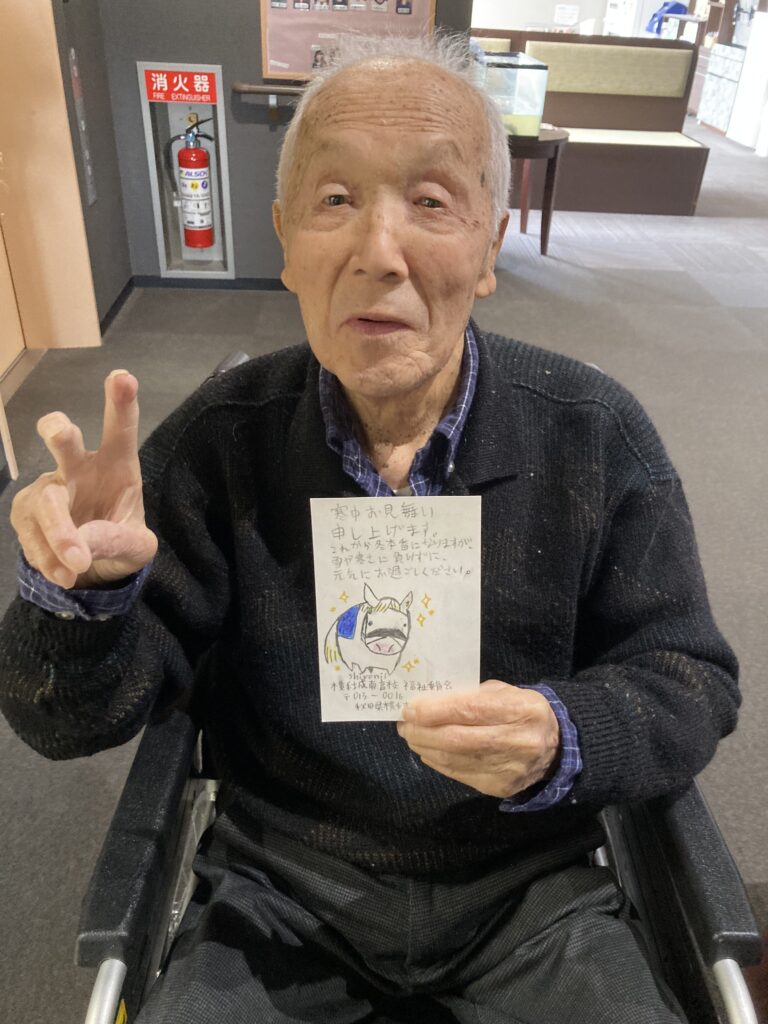 消火器
FIRE EXTINGUISHER
ALSOK
寒中お見舞い
申し上げます。
これから冬本番になりますが、
雪や寒さに負けずに、
元気にお過ごしください。
福祉委員会
〒013-0016
秋田県横手市